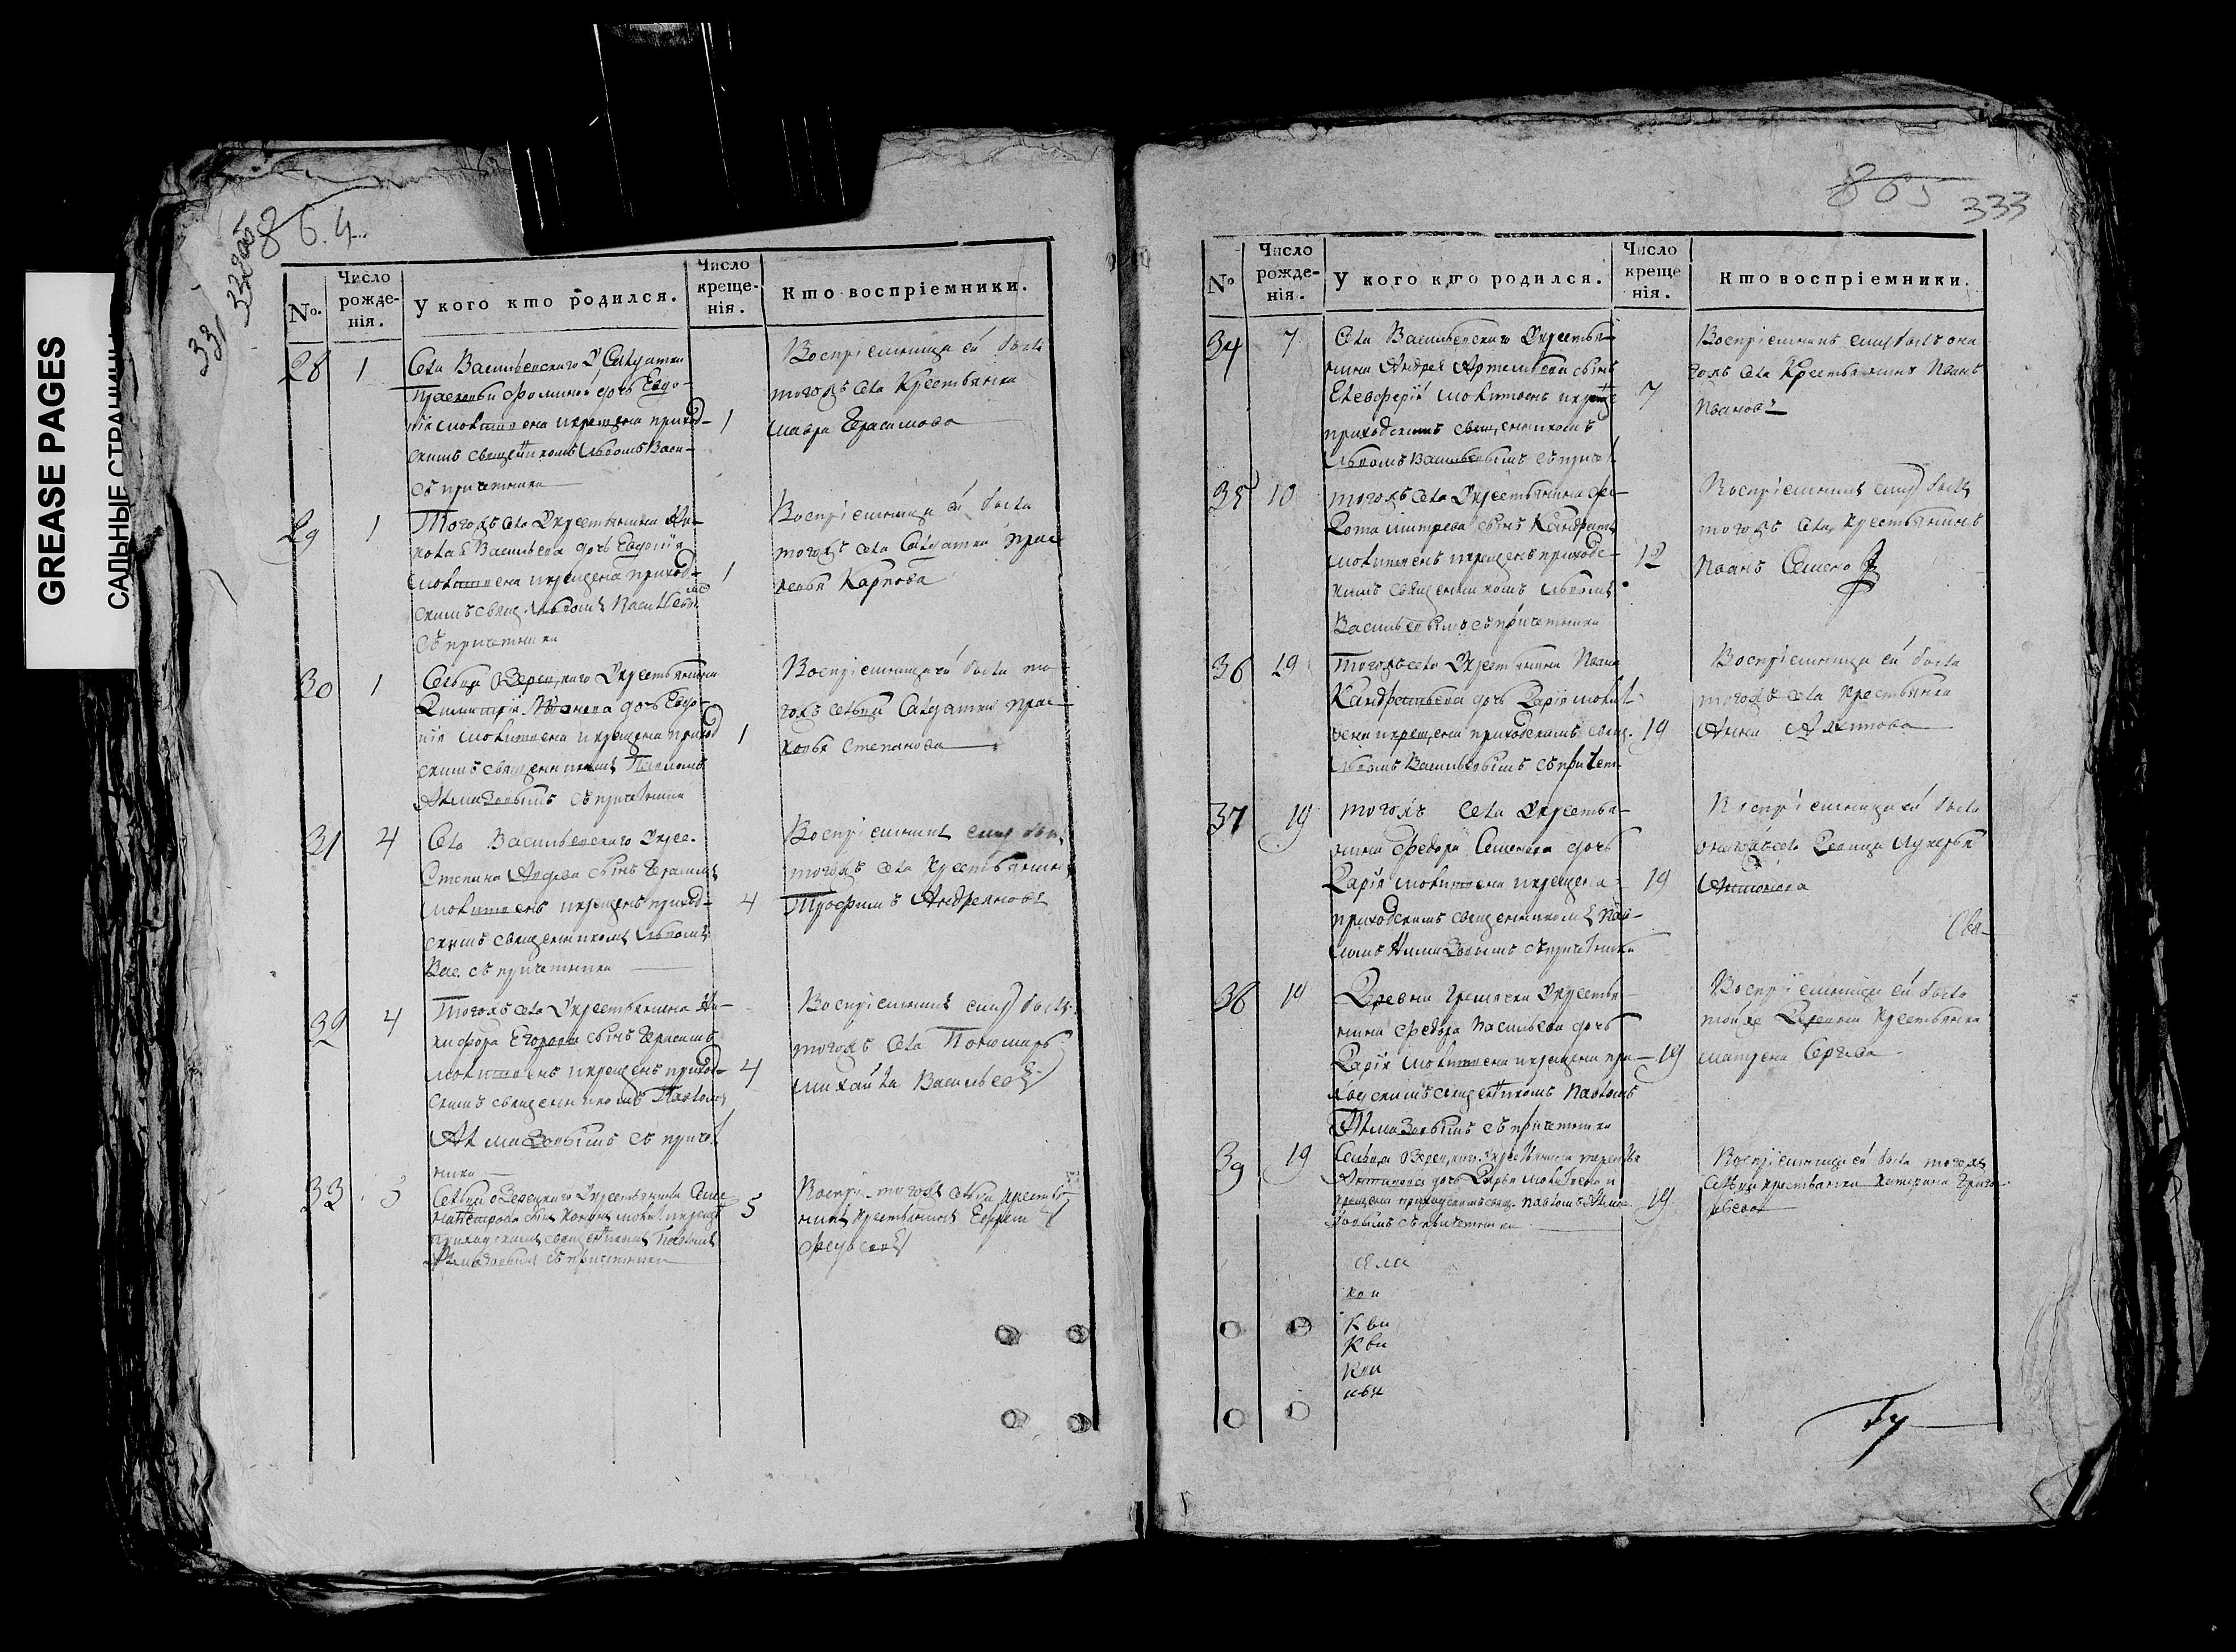 GREASE PAGES
САЛЬНЫЕ СТРАНИЦЫ
864
331
№.
Число рожде-нія.
У кого кто родился.
Число креще-нія.
Кто воспріемники.
28 1
Села Васильевскаго У Салдатки
Прасковьи Фоминой дочь Евдо-
кія молитвена икрещена приход-
скимъ священникомъ Львомъ Васи-
съ причетники
1
Воспріемница ей была
тогожъ села Крестьянка
мавра Герасимова
29 1
Тогожъ села Укрестьянина Ни-
колая Васильева дочь Евдокія
молитвена икрещена приход-
скимъ свящ. Львомъ Васильевы
съ причетники
1
Воспріемница ей была
тогожъ села Салдатка Прас
ковья Карпова
30 1
Сельца Озерецкаго Укрестьянина
Димитрія Иванова дочь Евдо-
кія молитвена икрещена приход
скимъ священникомъ Павломъ
Алмазовымъ съ причетники
1
Воспріемница ей была то
гожъ сельца Салдатка Прас-
ковья Степанова
31 4
Села Васильевскаго Укрес.
Степана Авдеева сынъ Герасимъ
молитвенъ икрещенъ приход-
скимъ священникомъ Львомъ
Вас. съ причетники
4
Воспріемникъ ему былъ
тогожъ села Крестьянинъ
Трофимъ Андреяновъ
32 4
Тогожъ села Укрестьянина Ни-
кифора Егорова сынъ Герасимъ
молитвенъ икрещенъ приход-
скимъ священникомъ Павломъ
Алмазовымъ съ причет
ники
4
Воспріемникъ ему былъ
тогожъ села Пономарь
михайла Васильевъ
33 5
Сельца Озерецкаго Укрестьянина
Петрова сынъ молит. икрещ
приходскимъ священником Павломъ
Алмазовымъ съ причетники
5
Воспр. тогожъ сельца крестья
нинъ Ефрем
865
333
№
Число рожде-нія.
У кого кто родился.
Число креще нія.
Кто воспріемники.
34 7
Села Васильевскаго Укрестья-
нина Андрея Артемьева сынъ
Елевферій молитвенъ икреще
приходскимъ священникомъ
Львомъ Васильевымъ съ причет
7
Воспріемникъ ему былъ она
гожъ села Крестьянинъ Иванъ
Ивановъ
35 10
тогожъ села Укрестьянина Фе-
дота митрева сынъ Кандратъ
молитвенъ икрещенъ приходс-
кимъ священникомъ Львомъ
Васильевымъ съ причетники
12
Воспріемникъ ему былъ
тогожъ села Крестьянинъ
Иванъ Семено
36 19
Тогожъ села Укрестьянина Ивана
Кандратьева дочь Дарія молит-
вена икрещена приходскимъ свящ.
Львомъ Васильевымъ съ причет-
19
Воспріемница ей была
тогожъ села Крестьянка
Анна
37 19
тогожъ села Укрестья-
нина Федора Семенова дочь
Дарія молитвена икрещена
приходскимъ священникомъ Пав-
ломъ Алмазовымъ съ причетники
19
Воспріемница ей была
онагожъ села Девица Лукерья
Антонова
Свя-
38 19
Деревни Укрестья-
нина Федора Васильева дочь
Дарія молитвена икрещена при-
ходскимъ священникомъ Павломъ
Алмазовымъ съ причетники
19
Воспріемница ей была
тойже Деревни Крестьянка
матрена Сергева
39 19
Сельца Озерецкаго Укрестьянина
дочь Дарья молитвена и
крещена приходскимъ свящ. Павломъ Алма-
зовымъ съ причетники
19
Воспріемница ей была тогожъ
сельца крестьянка Катерина Григо
рьева